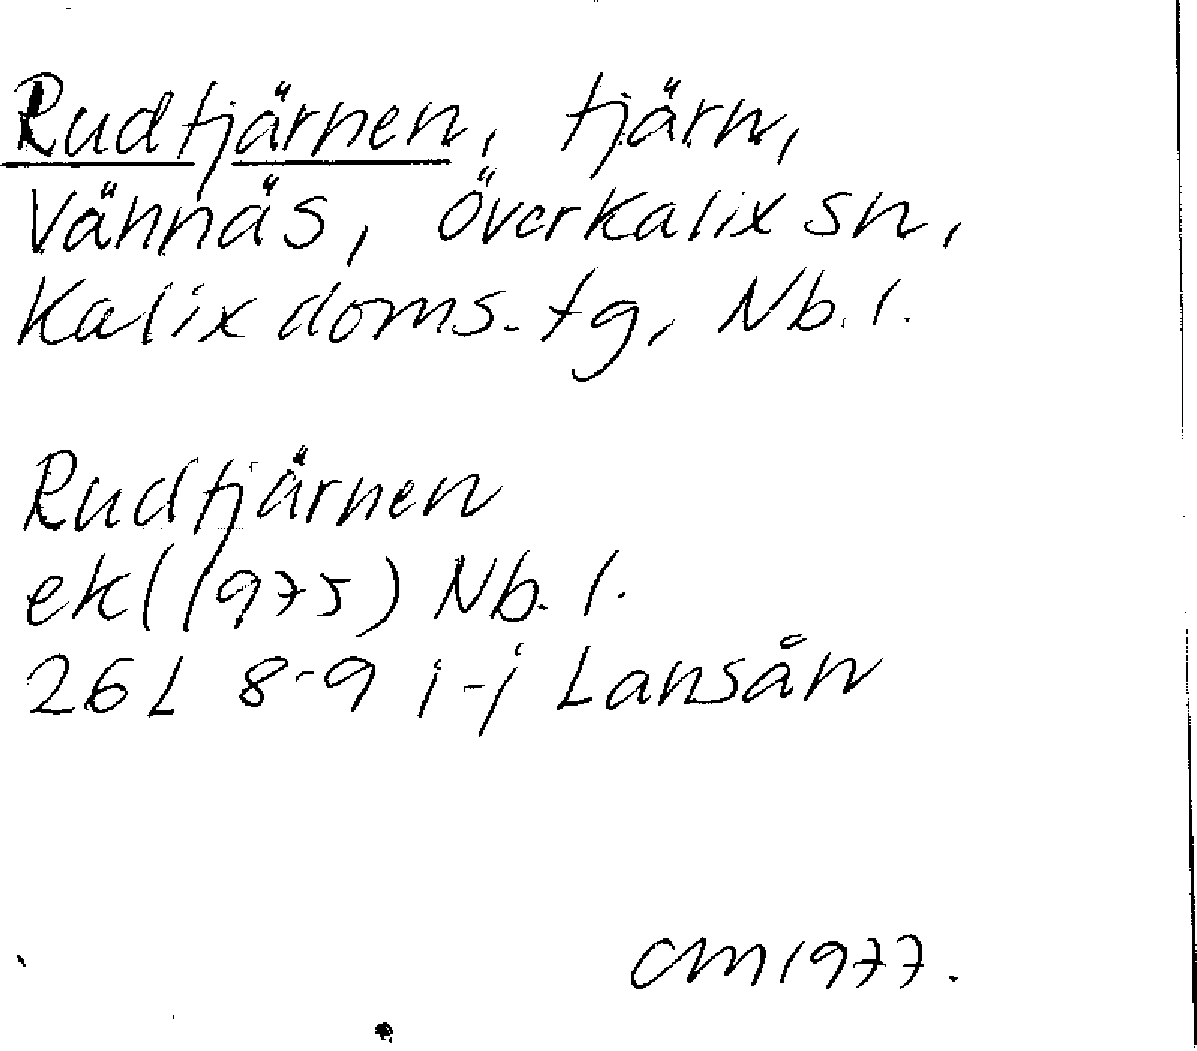 Rudtjärnen, tjärn,
Vännäs, Överkalix sn,
Kalix doms. tg, Nb. l.
Rudtjärnen
ek (1975) Nb. l.
26 L 8-9 i-j Lansån
CM 1977.